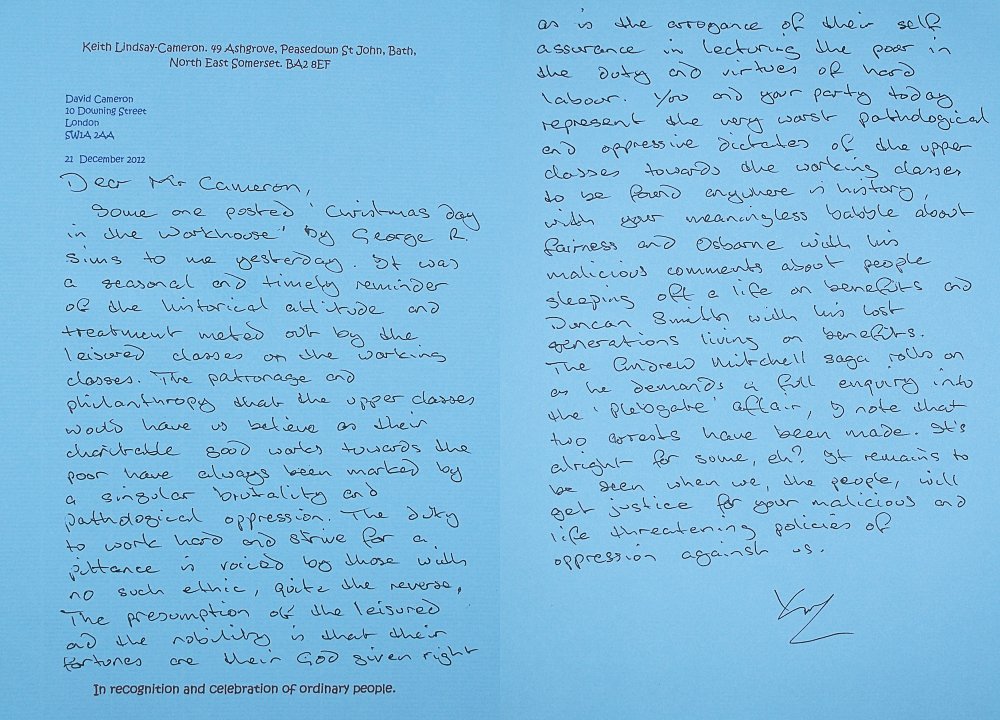 Keith Lindsay-Cameron. 49 Ashgrove, Peasedown St John, Bath,
North East Somerset. BA2 8EF
David Cameron
10 Downing Street
London
SW1A 2AA
21 December 2012
Dear Mr Cameron,
Some one posted 'Christmas day
in the Workhouse' by George R.
Sims to me yesterday. It was
a seasonal and timely reminder
of the historical attitude and
treatment meted out by the
leisured classes on the working
classes. The patronage and
philanthropy that the upper classes
would have us believe as their
charitable good works towards the
poor have always been marked by
a singular brutality and
pathological oppression. The duty
to work hard and strive for a
pittance is voiced by those with
no such ethic, quite the reverse.
The presumption of the leisured
and the nobility is that their
fortunes are their God given right
In recognition and celebration of ordinary people.
as is the arrogance of their self
assurance in lecturing the poor in
the duty and virtues of hard
labour. You and your party today
represent the very worst pathological
and oppressive dictates of the upper
classes towards the working classes
to be found anywhere in history,
with your meaningless babble about
fairness and Osborne with his
malicious comments about people
sleeping off a life on benefits and
Duncan Smith with his lost
generations living on benefits.
The Andrew Mitchell saga rolls on
as he demands a full enquiry into
the 'Plebgate' affair, I note that
two arrests have been made. It's
alright for some, eh? It remains to
be seen when we, the people, will
get justice for your malicious and
life threatening policies of
oppression against us.